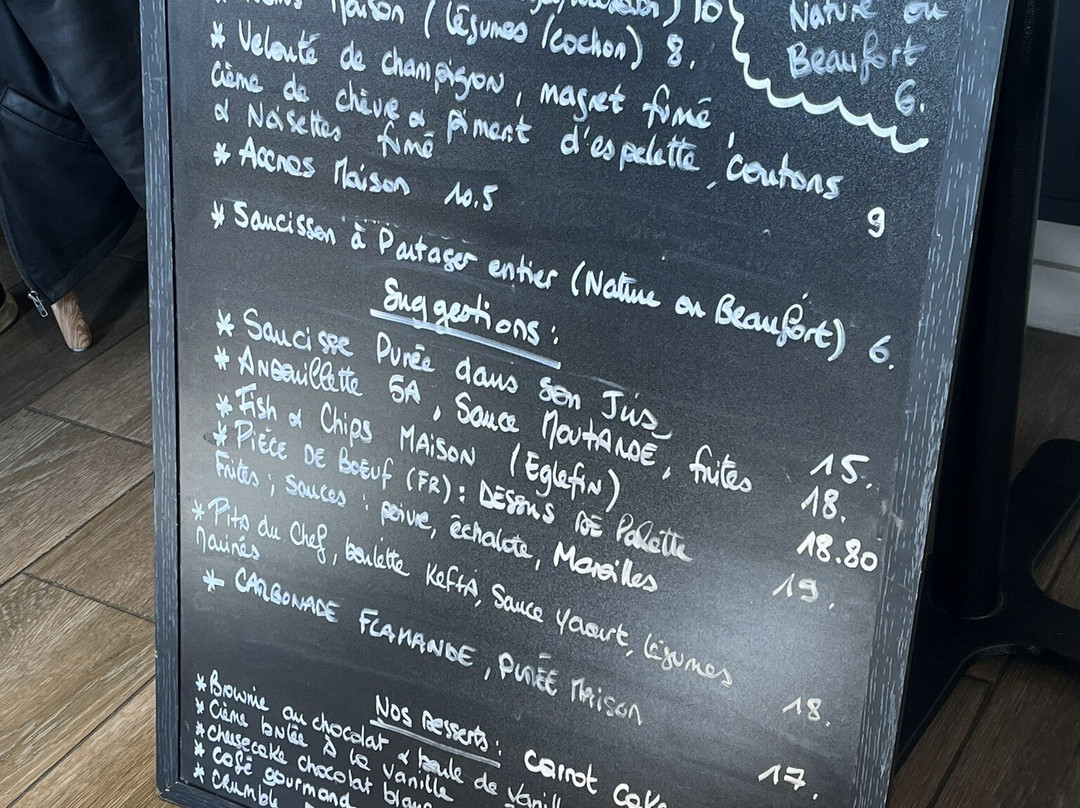 Maison (légumes / cochon) 8.
10
Nature ou
Beaufort
6.
* Velouté de champignon, magret fumé,
Crème de chèvre & Piment d'espelette, croutons
& Noisettes fumé 9
* Accras Maison 10.5
* Saucisson à Partager entier (Nature ou Beaufort) 6.
Suggestions :
* Saucisse Purée dans son Jus 15.
* Andouillette 5A, Sauce MOUTARDE, frites 18.
* Fish & Chips MAISON (Eglefin) 18.80
* PIÈCE DE BOEUF (FR) : DESSUS DE Palette 19.
Frites ; Sauces : poivre, échalote, Maroilles
* Pita du Chef, boulette KEFTA, Sauce Yaourt, légumes 18.
marinés
* CARBONADE FLAMANDE, PURÉE MAISON 17.
Nos Desserts :
* Brownie au chocolat & boule de vanill
* Crème brulée à la vanille
Carrot Cake
* cheesecake chocolat blanc
* café gourmand
* CRUMble